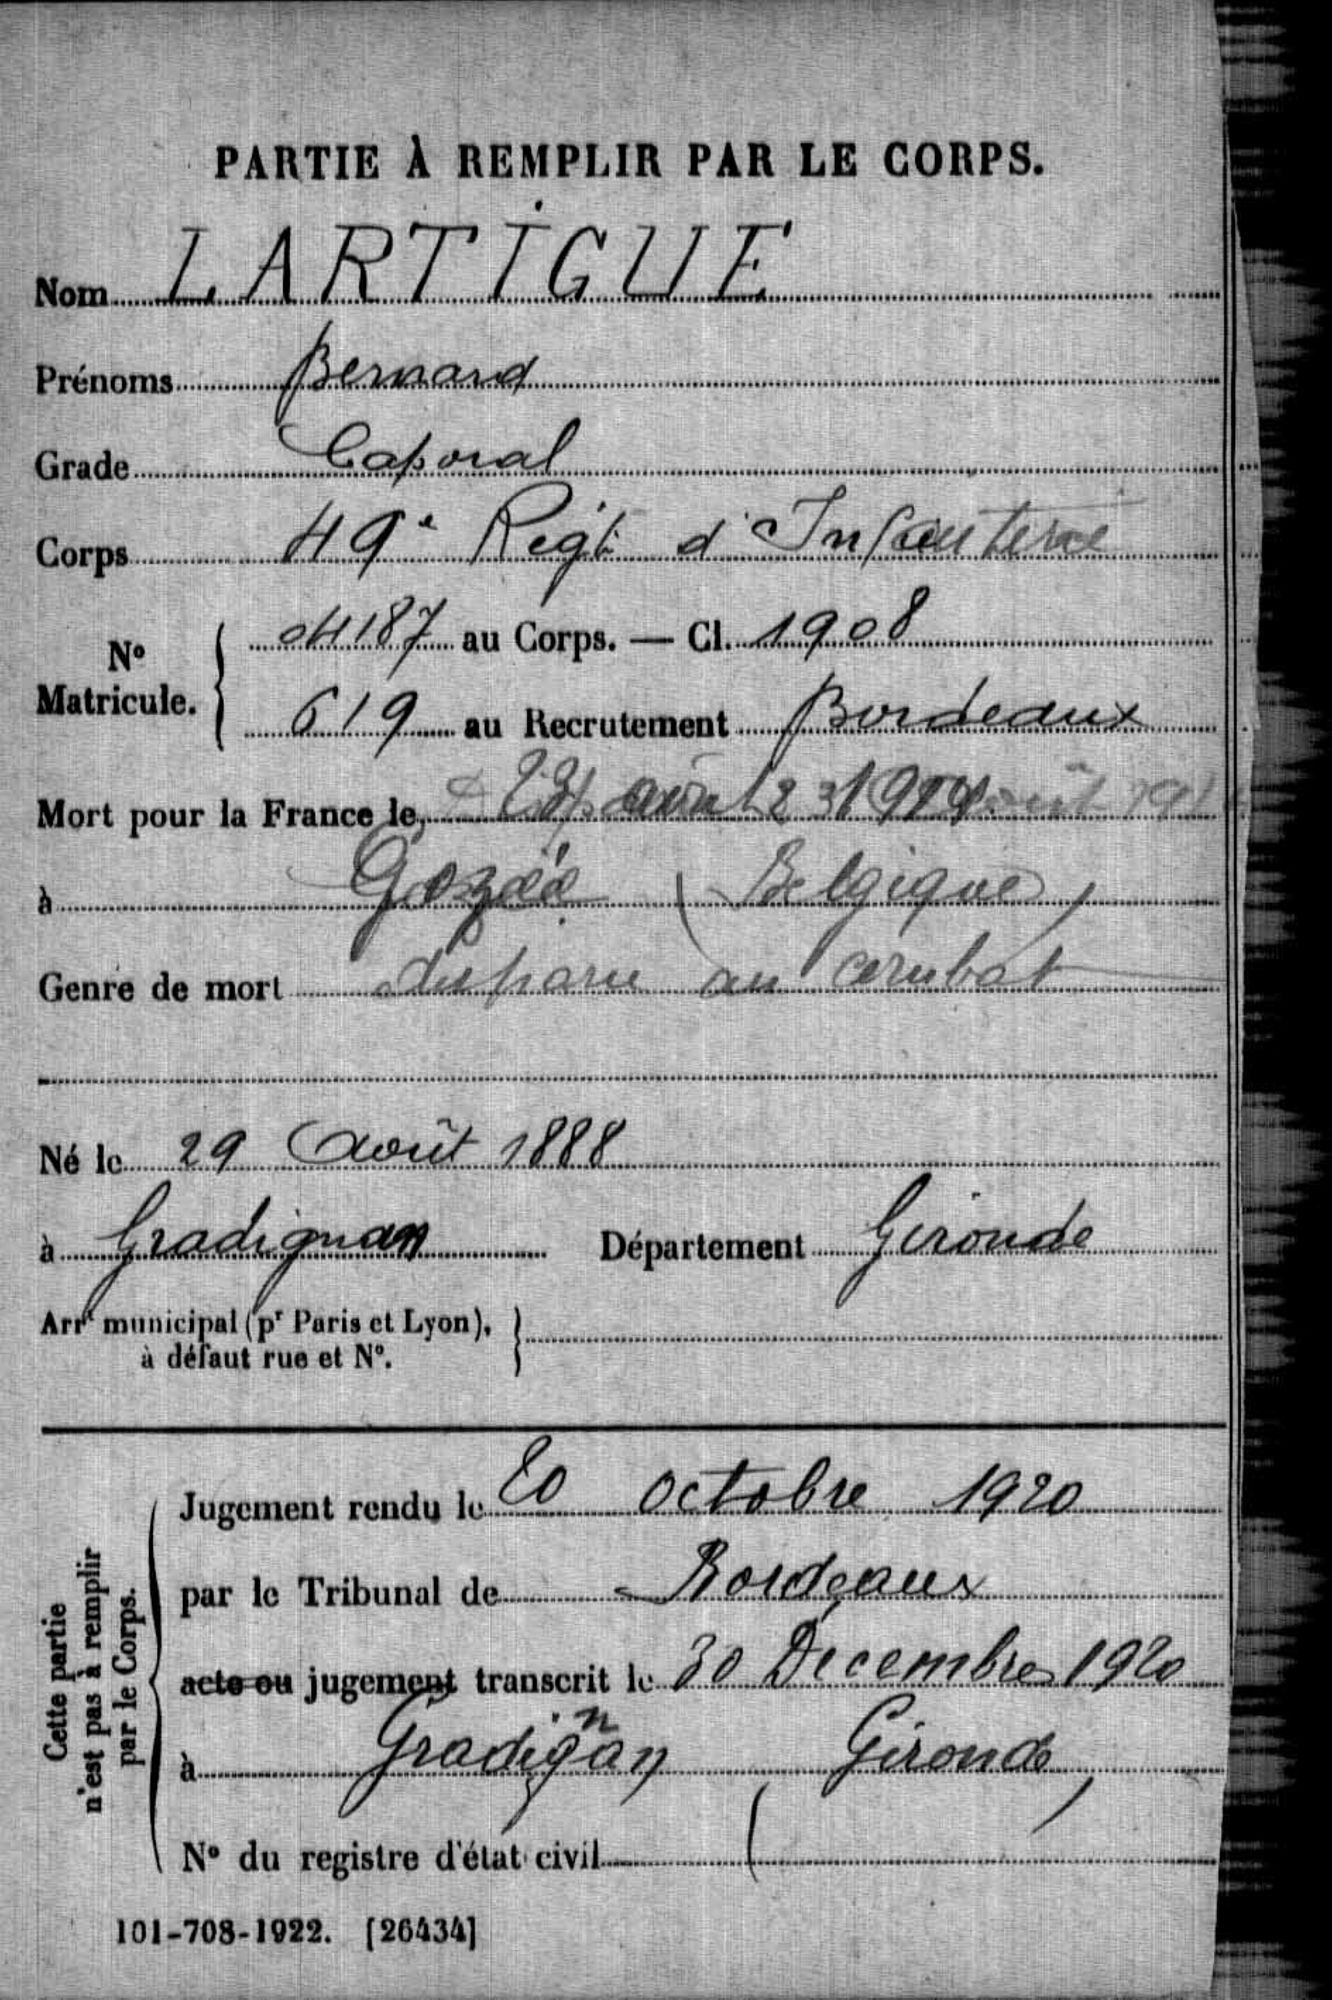 PARTIE À REMPLIR PAR LE CORPS.
Nom LARTIGUE
Prénoms Bernard
Grade Caporal
Corps 49e Régt d'Infanterie
No Matricule. 04187 au Corps. — Cl. 1908
619 au Recrutement Bordeaux
Mort pour la France le
à Gozée (Belgique)
Genre de mort disparu au combat
Né le 29 Août 1888
à Gradignan Département Gironde
Arrt municipal (pr Paris et Lyon),
à défaut rue et No.
Cette partie
n'est pas à remplir
par le Corps.
Jugement rendu le 20 octobre 1920
par le Tribunal de Bordeaux
acte ou jugement transcrit le 30 Décembre 1920
à Gradignan (Gironde)
No du registre d'état civil
101-708-1922. [26434]